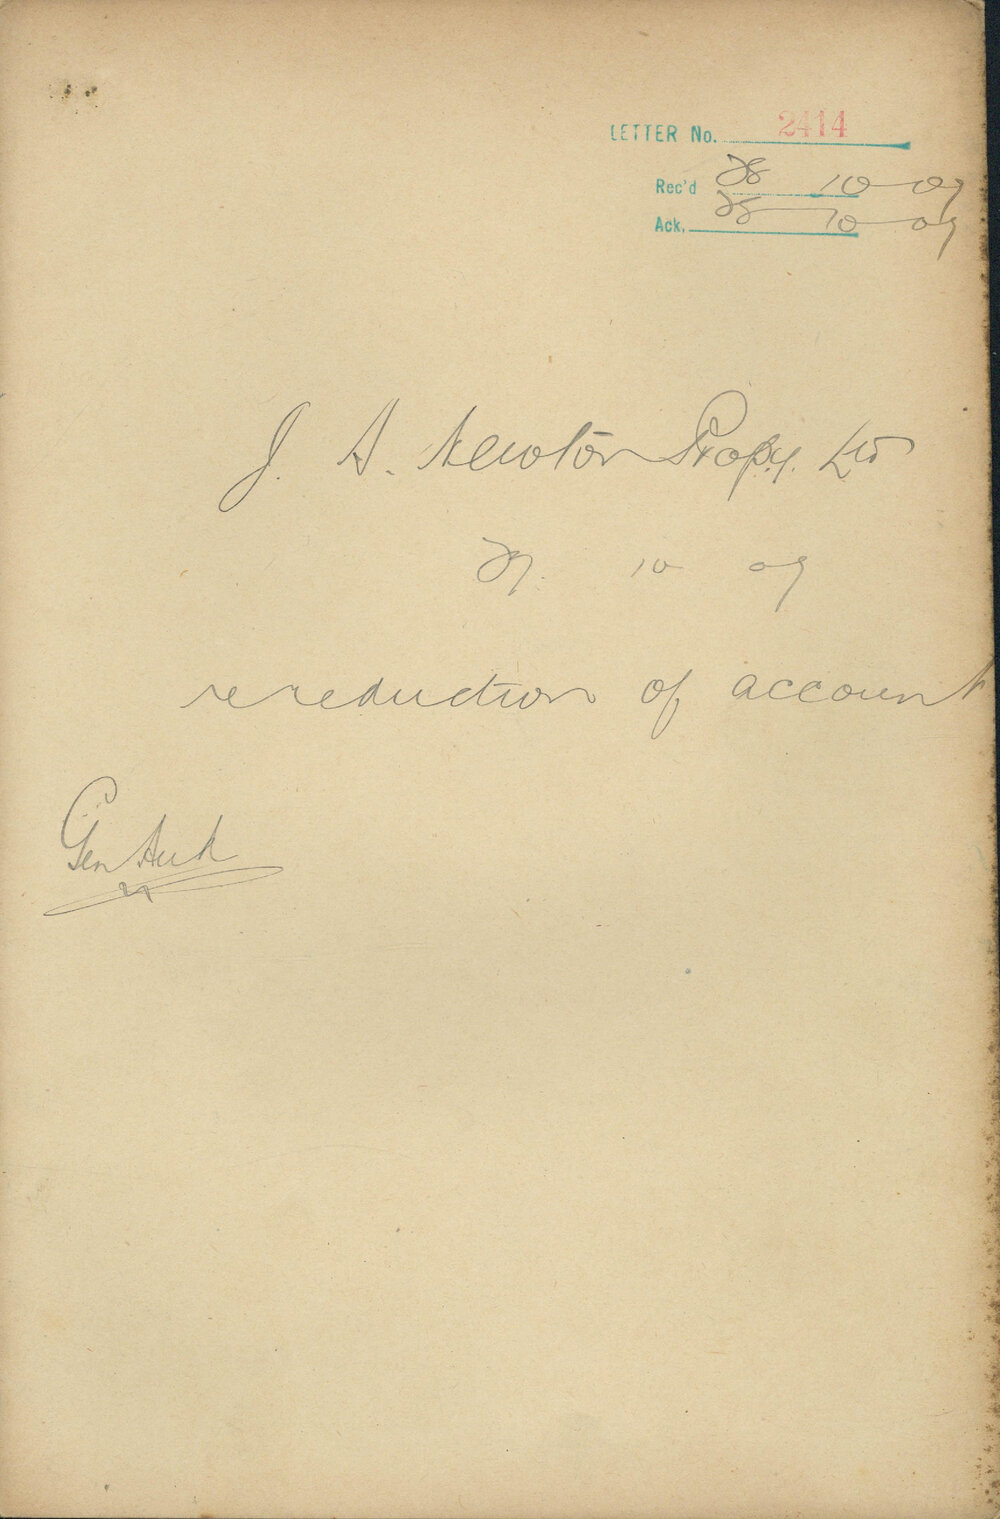 LETTER No. 2414
Rec'd 28 10 09
Ack. 28 10 09
J. A. Newton Propy. Ltd
27. 10 09
re reduction of account
Gen